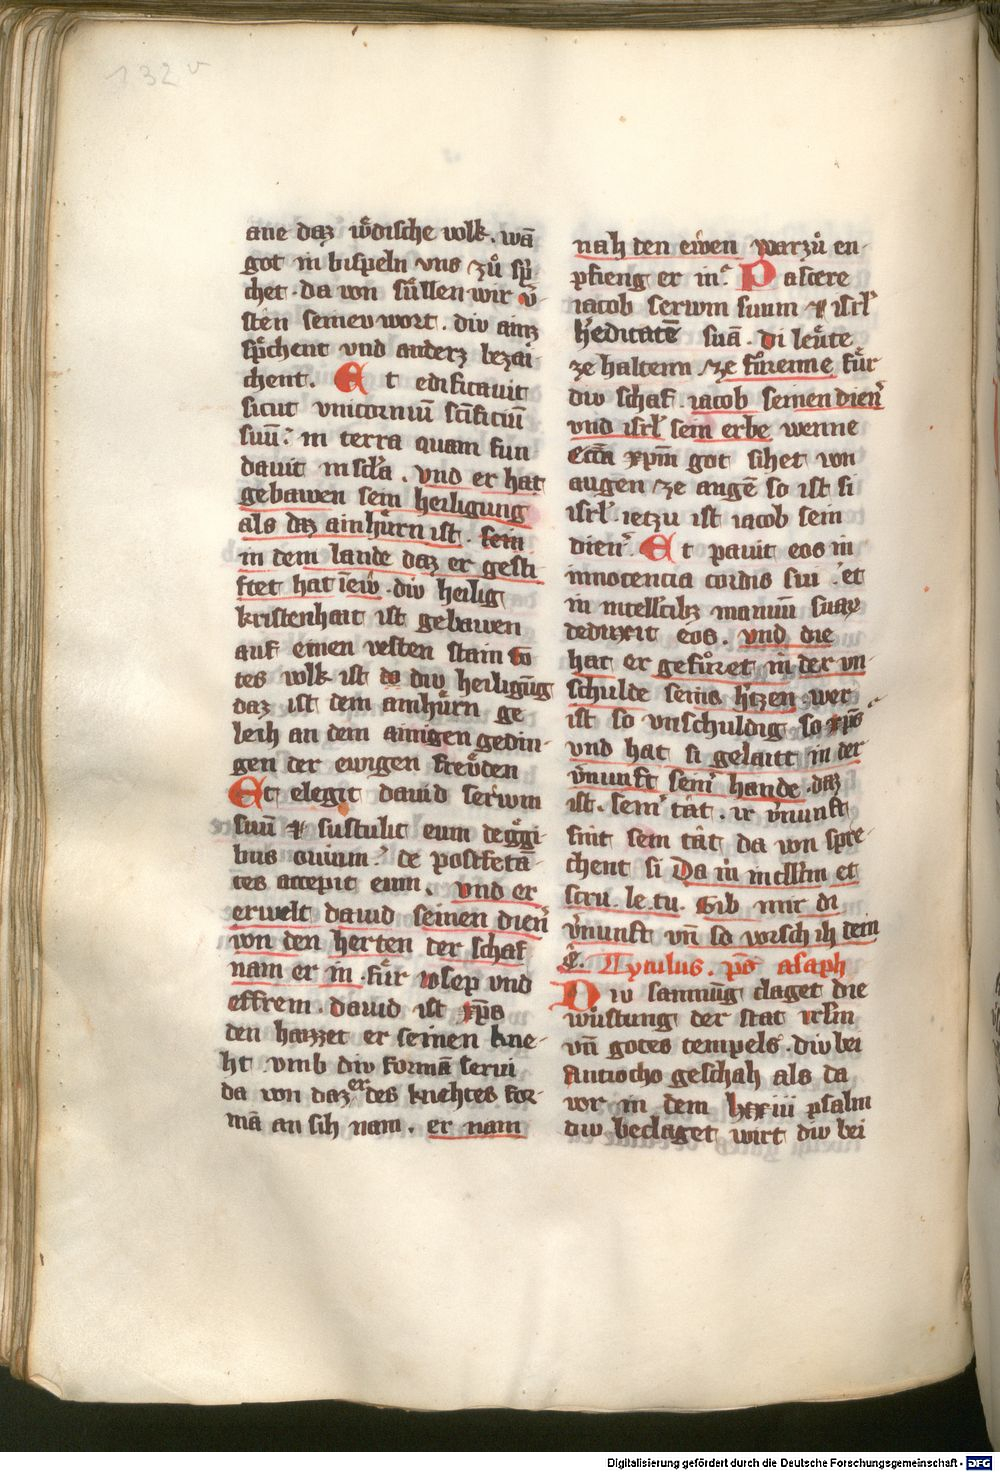 132v
ane daz iv̊dische volk. wā
got in bispeln vns zů sp̄
chet. da von sůllen wir v̄
sten seinev wort. div ainz
sp̄chent vnd anderz bezai
chent. Et edificauit
sicut vnicorniū sc̄ificiū
suū. in terra quam fun
dauit in sc̄la. vnd er hat
gebawen sein heiligung
als daz ainhůrn ist. sein
in dem lande daz er gesti
ftet hat īew̄. div heilig
kristenhait ist gebawen
auf einen vesten stain to
tes volk ist do div heiligūg
daz ist dem ainhůrn ge
leih an dem ainigen gedin-
gen der ewigen frev̊den
Et elegit dauid serūm
suū et sustulit eum de ḡgi
bus ouium. de postfetā-
tes accepit eum. vnd er
erwelt dauid seinen dien̄
von den herten der schaf
nam er in. fůr iosep vnd
effrem. dauid ist xp̄s
den haizzet er seinen kne-
ht vmb div formā serui
da von daz er des knehtes for-
mā an sih nam. er nam
nah den ewen warzů en-
pfieng er in. Pascere
iacob seruum suum et isrl̄
h̄editatē suā. di lev̊te
ze halten ze fůrenne fůr
div schaf. iacob seinen dien̄
vnd isrl̄ sein erbe wenne
ecc̄a xp̄m got sihet von
augen ze augē so ist si
isrl̄. ietzu ist iacob sein
dien̄. Et pauit eos in
innocencia cordis sui. et
in intell'cibz manuū suaꝝ
deduxit eos. vnd die
hat er gefůret in der vn-
schulde seins h̄tzen wer
ist so vnschuldig so xp̄s
vnd hat si gelaitt in der
v̄nunft sein̄ hande. daz
ist. sein̄ tāt. ir v̄nunft
sint sein tāt da von spre-
chent si Da in intll̄m et
scru. le. tu. Gib mir di
v̄nunft vn̄ so vorsch ih dein
ē. Tytulus. ps̄ asaph
Div samnūg claget die
wůstung der stat irl̄m
vn̄ gotes tempels. div bei
Antiocho geschah als da
vor in dem lxxiii psalm
div beclaget wirt div bei
Digitalisierung gefördert durch die Deutsche Forschungsgemeinschaft - DFG